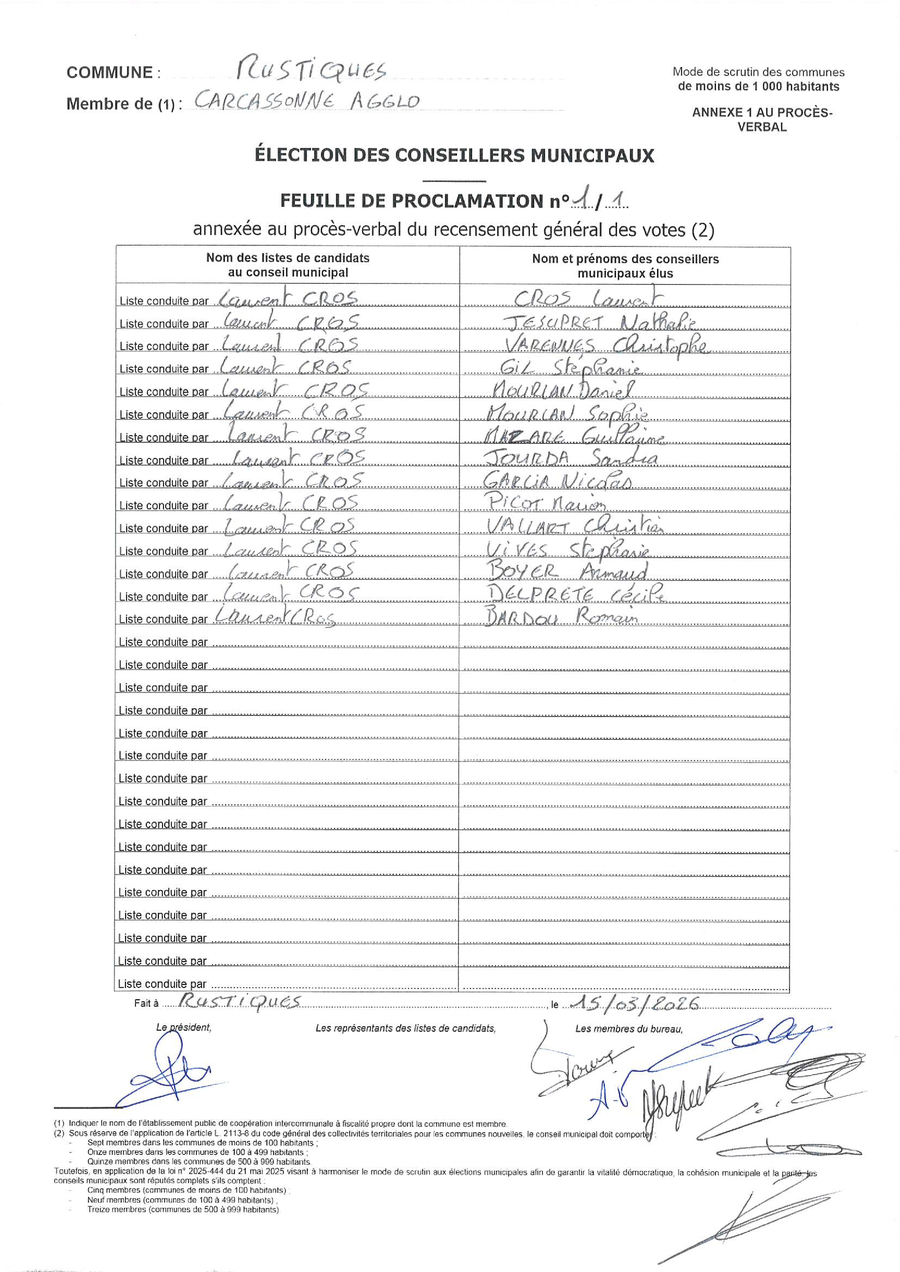 COMMUNE : RUSTIQUES
Membre de (1) : CARCASSONNE AGGLO
Mode de scrutin des communes
de moins de 1 000 habitants
ANNEXE 1 AU PROCÈS-
VERBAL
ÉLECTION DES CONSEILLERS MUNICIPAUX
FEUILLE DE PROCLAMATION n° 1 / 1
annexée au procès-verbal du recensement général des votes (2)
Nom des listes de candidats
au conseil municipal
Nom et prénoms des conseillers
municipaux élus
Liste conduite par Laurent CROS CROS Laurent
Liste conduite par Laurent CROS JESUPRET Nathalie
Liste conduite par Laurent CROS VARENNES Christophe
Liste conduite par Laurent CROS GIL Stéphanie
Liste conduite par Laurent CROS MOURLAN Daniel
Liste conduite par Laurent CROS MOURLAN Sophie
Liste conduite par Laurent CROS MAZARE Guillaume
Liste conduite par Laurent CROS JOURDA Sandra
Liste conduite par Laurent CROS GARCIA Nicolas
Liste conduite par Laurent CROS PICOT Marion
Liste conduite par Laurent CROS VALLART Christian
Liste conduite par Laurent CROS VIVES Stéphanie
Liste conduite par Laurent CROS BOYER Armaud
Liste conduite par Laurent CROS DELPRETE Cécile
Liste conduite par Laurent CROS BARDOU Romain
Liste conduite par
Liste conduite par
Liste conduite par
Liste conduite par
Liste conduite par
Liste conduite par
Liste conduite par
Liste conduite par
Liste conduite par
Liste conduite par
Liste conduite par
Liste conduite par
Liste conduite par
Liste conduite par
Liste conduite par
Liste conduite par
Fait à RUSTIQUES , le 15/03/2026
Le président, Les représentants des listes de candidats, Les membres du bureau,
A.V
(1) Indiquer le nom de l'établissement public de coopération intercommunale à fiscalité propre dont la commune est membre.
(2) Sous réserve de l'application de l'article L. 2113-8 du code général des collectivités territoriales pour les communes nouvelles, le conseil municipal doit comporter :
- Sept membres dans les communes de moins de 100 habitants ;
- Onze membres dans les communes de 100 à 499 habitants ;
- Quinze membres dans les communes de 500 à 999 habitants.
Toutefois, en application de la loi n° 2025-444 du 21 mai 2025 visant à harmoniser le mode de scrutin aux élections municipales afin de garantir la vitalité démocratique, la cohésion municipale et la parité, les
conseils municipaux sont réputés complets s'ils comptent :
- Cinq membres (communes de moins de 100 habitants) ;
- Neuf membres (communes de 100 à 499 habitants) ;
- Treize membres (communes de 500 à 999 habitants)